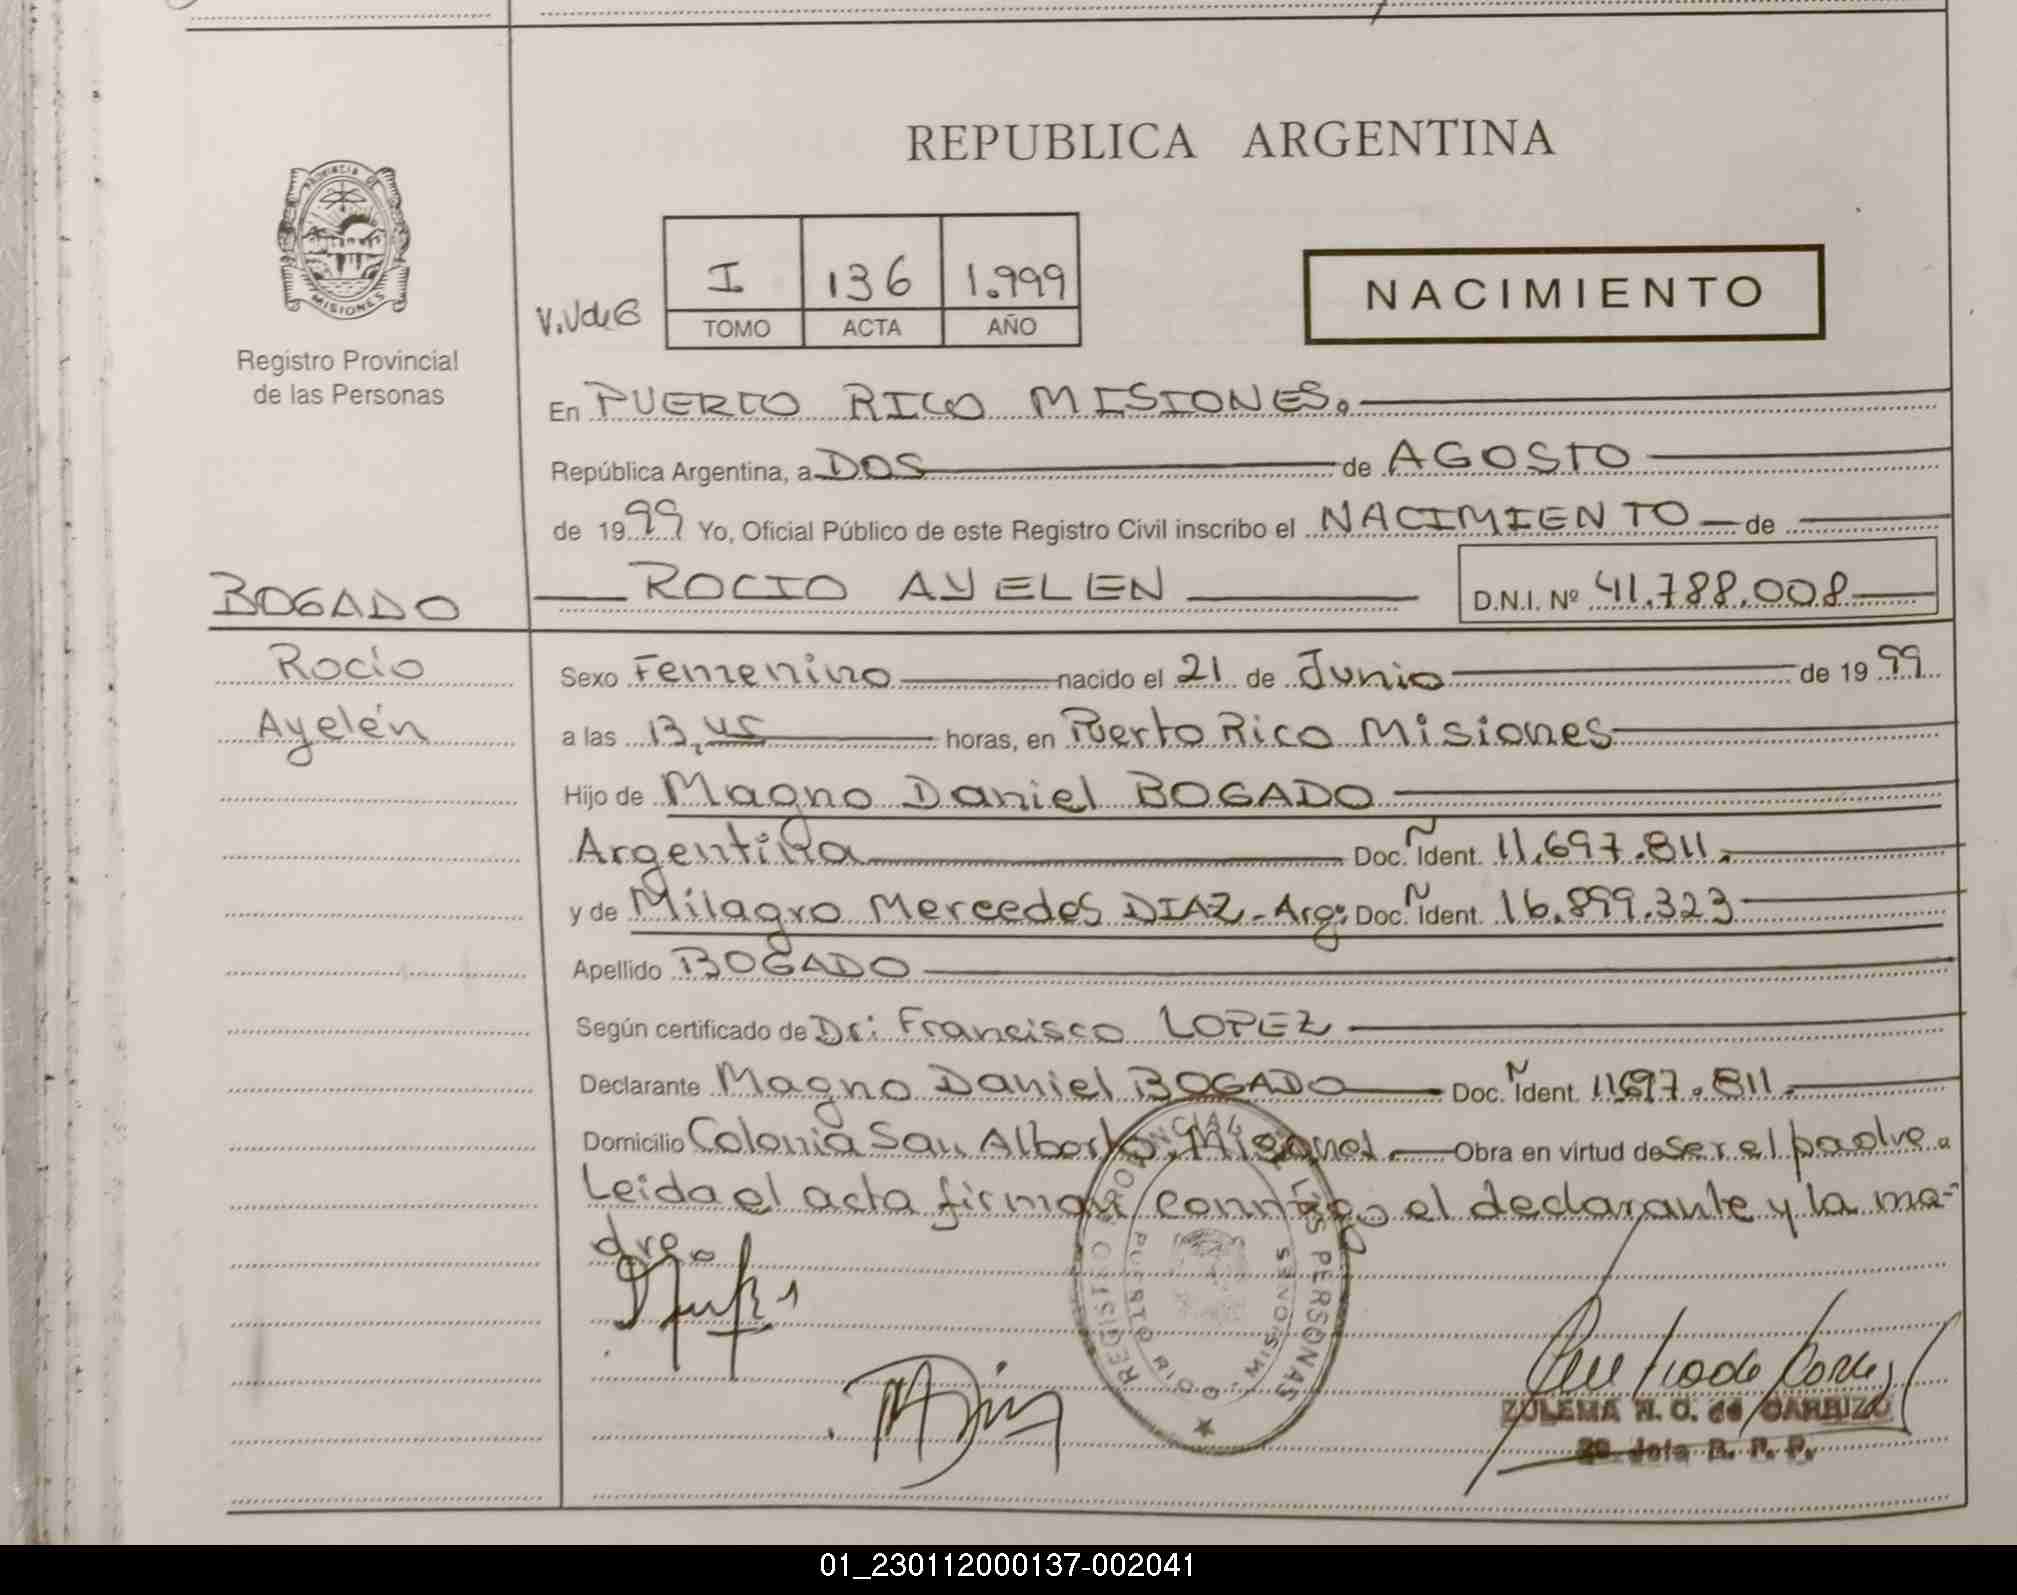 REPUBLICA ARGENTINA
PROVINCIA DE
MISIONES
Registro Provincial
de las Personas
I 136 1.999
TOMO ACTA AÑO
NACIMIENTO
En PUERTO RICO MISIONES.
República Argentina, a DOS de AGOSTO
de 1999 Yo, Oficial Público de este Registro Civil inscribo el NACIMIENTO de
BOGADO
ROCIO AYELEN D.N.I. Nº 41.788.008
Rocío
Ayelén
Sexo Femenino nacido el 21 de Junio de 1999
a las 13,45 horas, en Puerto Rico Misiones
Hijo de Magno Daniel BOGADO
Argentina Doc. Ñ Ident. 11.697.811.
y de Milagro Mercedes DIAZ - Arg: Doc. Ñ Ident. 16.899.323
Apellido BOGADO
Según certificado de Dr: Francisco LOPEZ
Declarante Magno Daniel BOGADO Doc. Ñ Ident. 11697.811.
Domicilio Colonia San Alberto, Misiones. Obra en virtud de ser el padre.
Leida el acta firman conmigo el declarante y la ma-
dre.
REGISTRO PROVINCIAL DE LAS PERSONAS
PUERTO RICO - MISIONES
ZULEMA de
R. P. P.
01_230112000137-002041